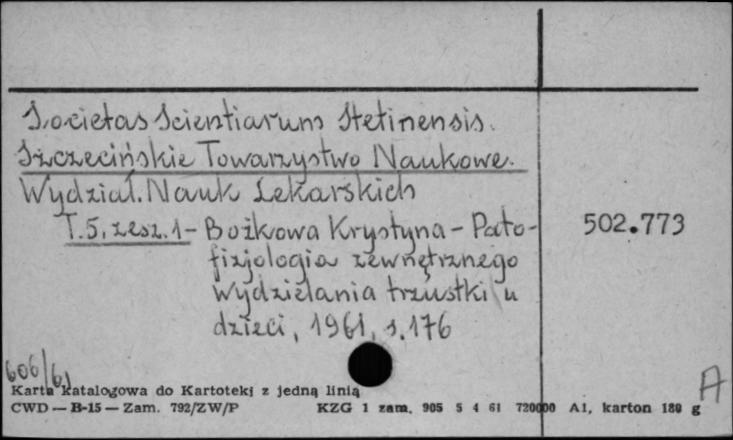 Societas Scientiarum Stetinensis.
Szczecińskie Towarzystwo Naukowe.
Wydział. Nauk Lekarskich
T.5, zesz. 1 - Bożkowa Krystyna - Pato-
fizjologia zewnętrznego
wydzielania trzustki u
dzieci, 1961, s. 176
502.773
606/61
A
Karta katalogowa do Kartoteki z jedną linią
CWD — B-15 — Zam. 792/ZW/P KZG 1 zam. 905 5 4 61 720000 A1, karton 180 g